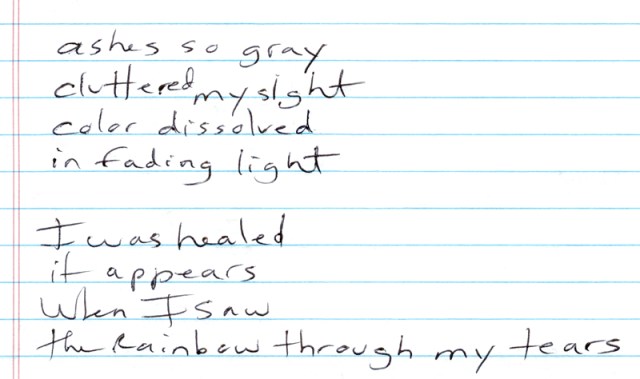 ashes so gray
cluttered my sight
color dissolved
in fading light
I was healed
it appears
When I saw
the Rainbow through my tears